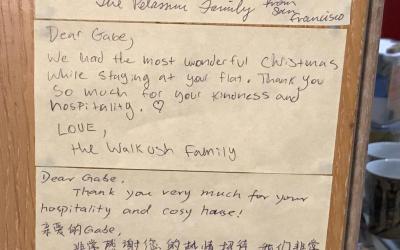 The Pelassum Family from
San
Francisco
Dear Gabe,
We had the most wonderful Christmas
while staying at your flat. Thank you
so much for your kindness and
hospitality. ♡
LOVE,
the Walkush Family
Dear Gabe,
Thank you very much for your
hospitality and cosy house!
亲爱的Gabe,
非常感谢您的热情招待,我们非常